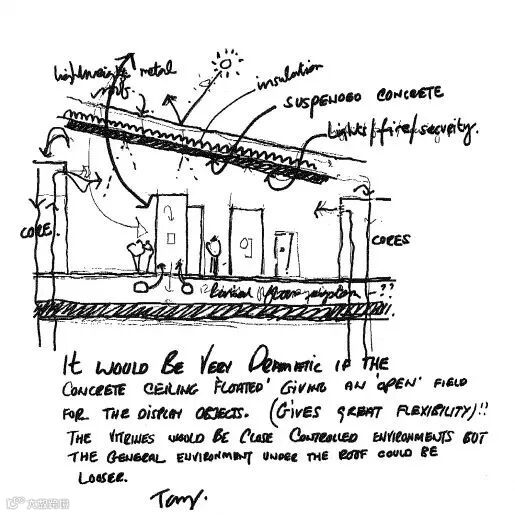 lightweight metal
roof.
insulation
SUSPENDED CONCRETE
Lights/fire/security.
CORE.
CORES
floor — ??
IT WOULD BE VERY DRAMATIC IF THE
CONCRETE CEILING 'FLOATED' GIVING AN 'OPEN' FIELD
FOR THE DISPLAY OBJECTS. (GIVES GREAT FLEXIBILITY)!!
THE VITRINES WOULD BE CLOSE CONTROLLED ENVIRONMENTS BUT
THE GENERAL ENVIRONMENT UNDER THE ROOF COULD BE
LOOSER.
Tony.